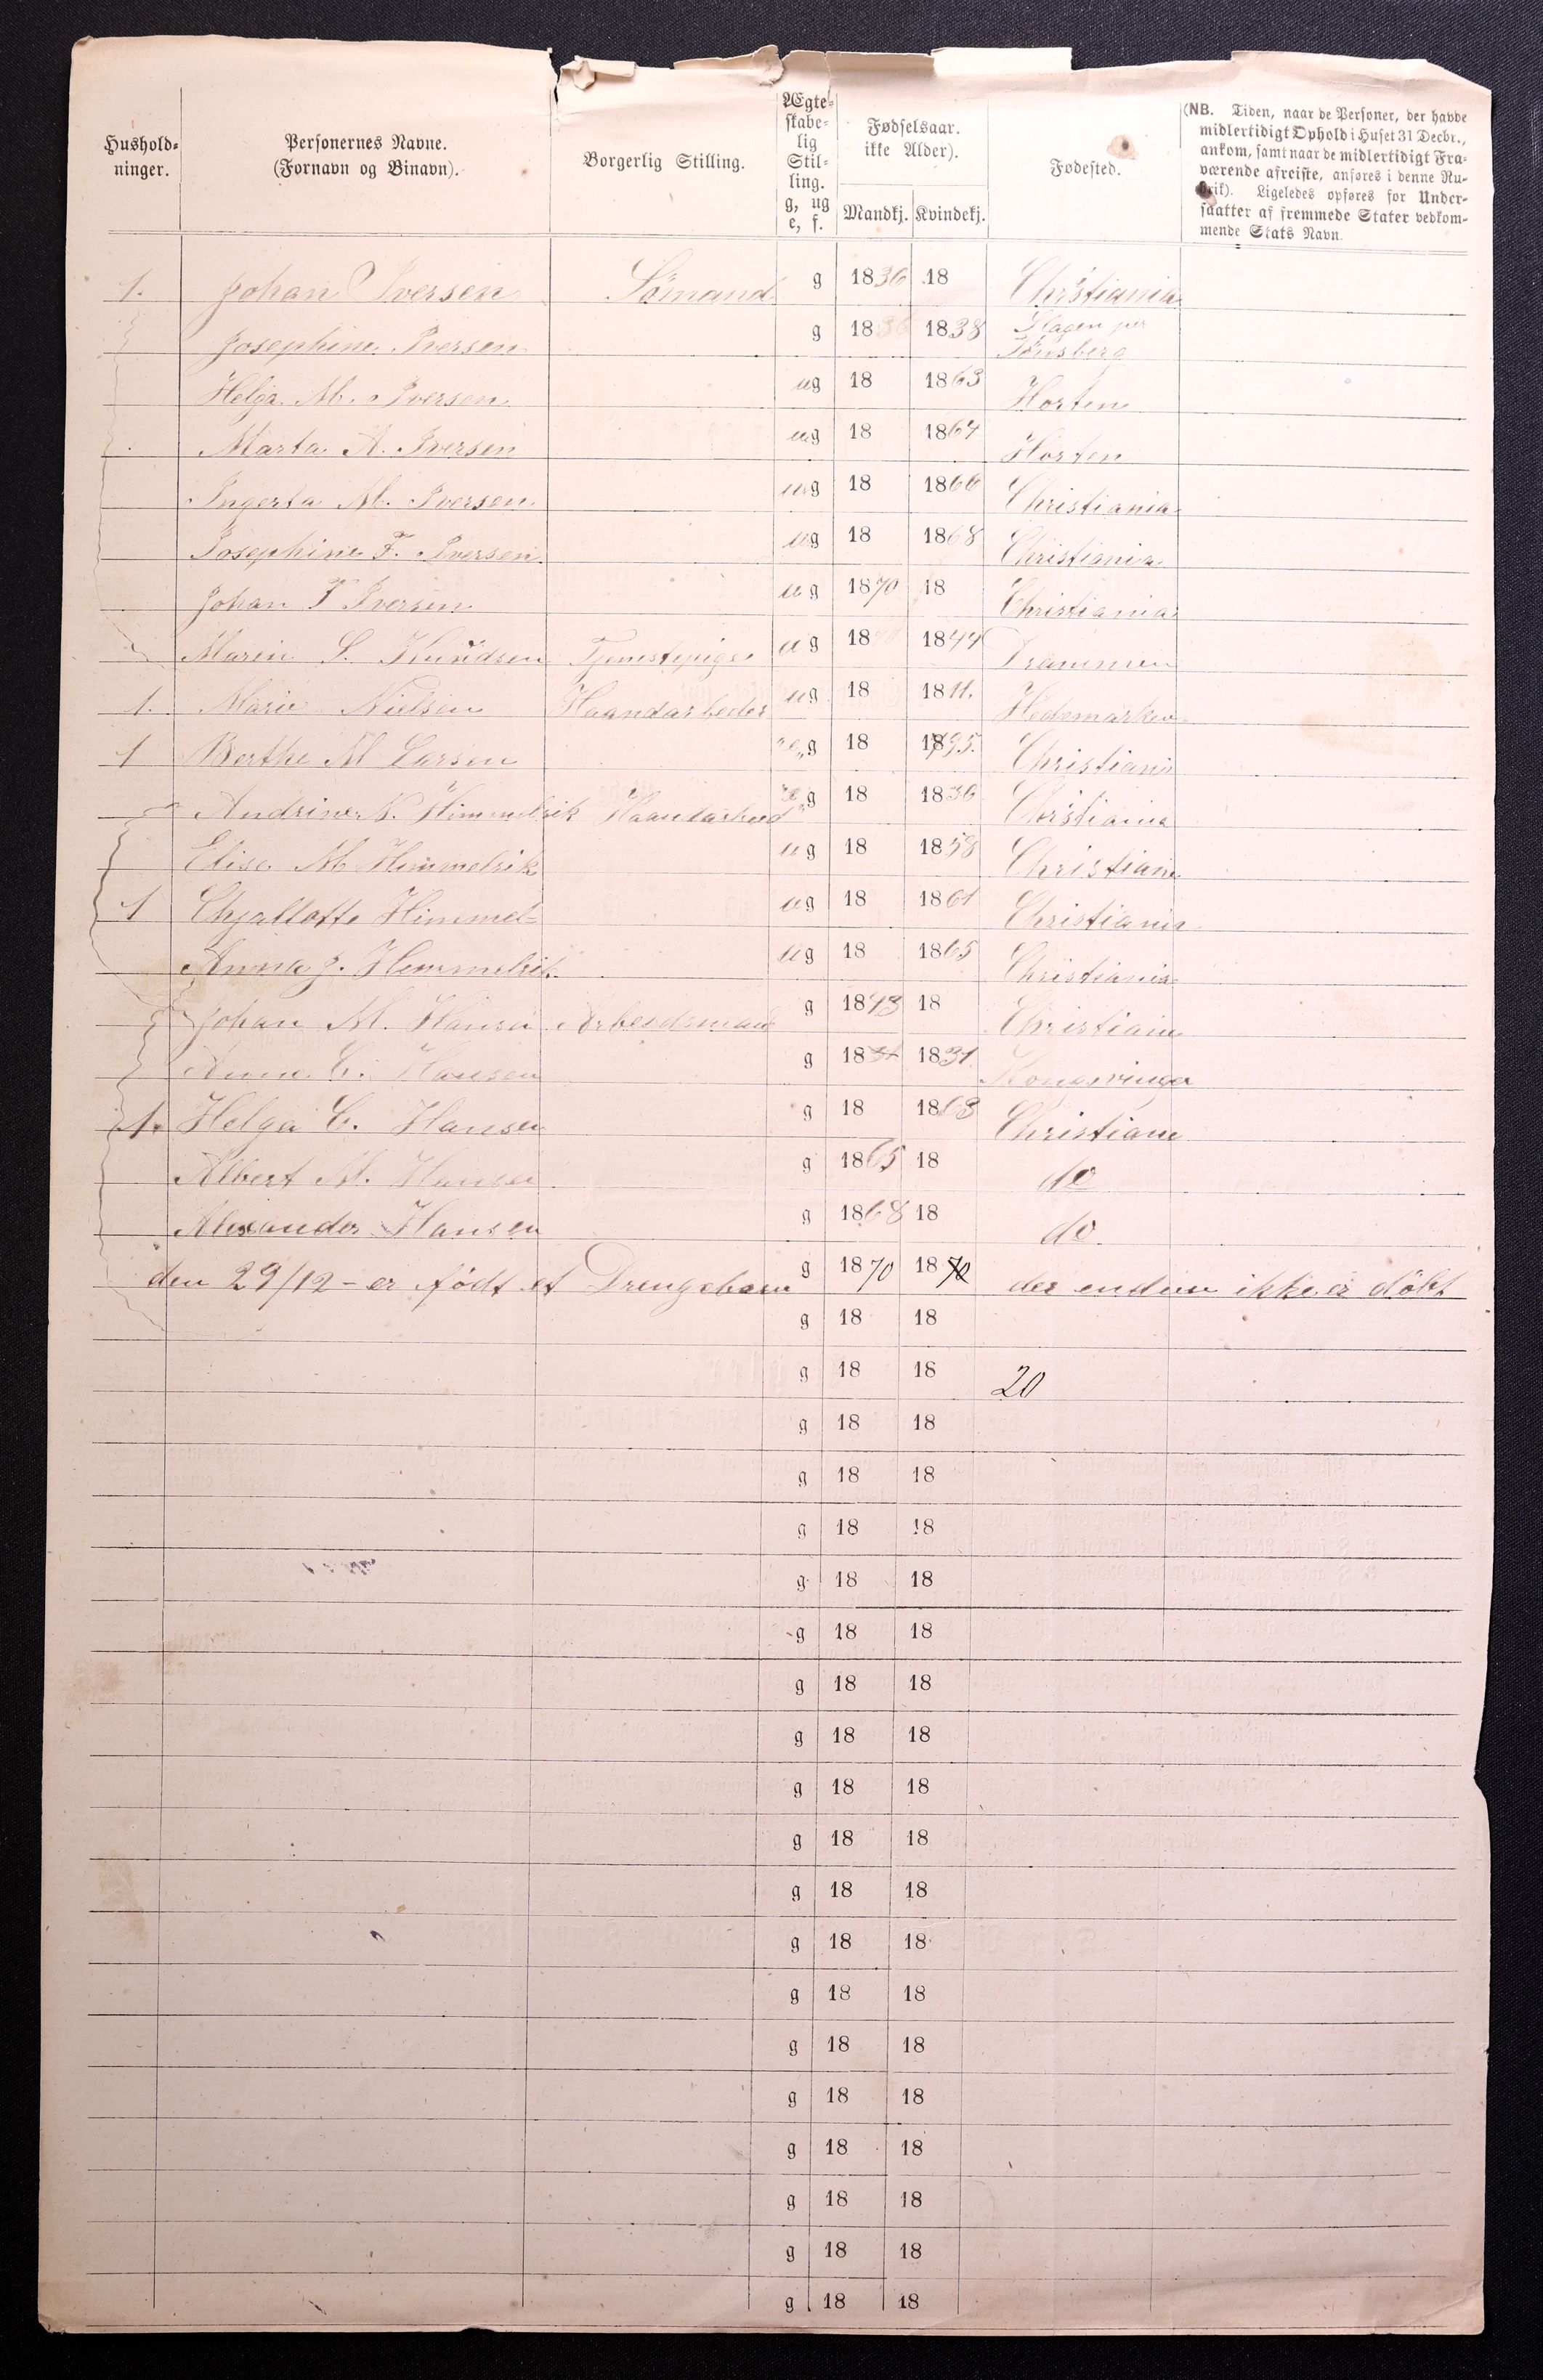 Hushold-
ninger.
Personernes Navne.
(Fornavn og Binavn).
Borgerlig Stilling.
Ægte-
skabe-
lig
Stil-
ling.
g, ug
e, f.
Fødselsaar.
ikke Alder).
Mandkj. Kvindekj.
Fødested.
(NB. Tiden, naar de Personer, der havde
midlertidigt Ophold i Huset 31 Decbr.,
ankom, samt naar de midlertidigt Fra-
værende afreiste, anføres i denne Ru-
brik). Ligeledes opføres for Under-
saatter af fremmede Stater vedkom-
mende Stats Navn.
1. Johan Iversen Sømand g 1836 18 Christiania
Josephine Iversen g 18 1838 Slagen per
Tønsberg
Helga M. Iversen ug 18 1863 Horten
Marta A. Iversen ug 18 1864 Horten
Ingerta M. Iversen ug 18 1866 Christiania
Josephine F. Iversen ug 18 1868 Christiania
Johan F Iversen ug 1870 18 Christiania
Maren S. Knudsen Tjenestepige ug 18 1844 Drammen
1. Marie Nielsen Haandarbeder ug 18 1811. Hedemarken
1 Berthe M Larsen g 18 1795. Christiania
Andrine N. Himmelrik Haandarbeid g 18 1836 Christiania
Elise M Himmelrik ug 18 1858 Christiani
1 Chjallotte Himmel- ug 18 1861 Christiania
Anna J. Himmelrik ug 18 1865 Christiania
Johan M. Hansen Arbeidsmand g 1843 18 Christiania
Anne C. Hansen g 1831 1831. Kongsvinger
1. Helga C. Hansen g 18 1863 Christiane
Albert M. Hansen g 1865 18 do
Alexander Hansen g 1868 18 do.
den 29/12 - er født et Drengebarn g 1870 1870 der endnu ikke er døbt
g 18 18
g 18 18 20
g 18 18
g 18 18
g 18 18
g 18 18
g 18 18
g 18 18
g 18 18
g 18 18
g 18 18
g 18 18
g 18 18
g 18 18
g 18 18
g 18 18
g 18 18
g 18 18
g 18 18
g 18 18